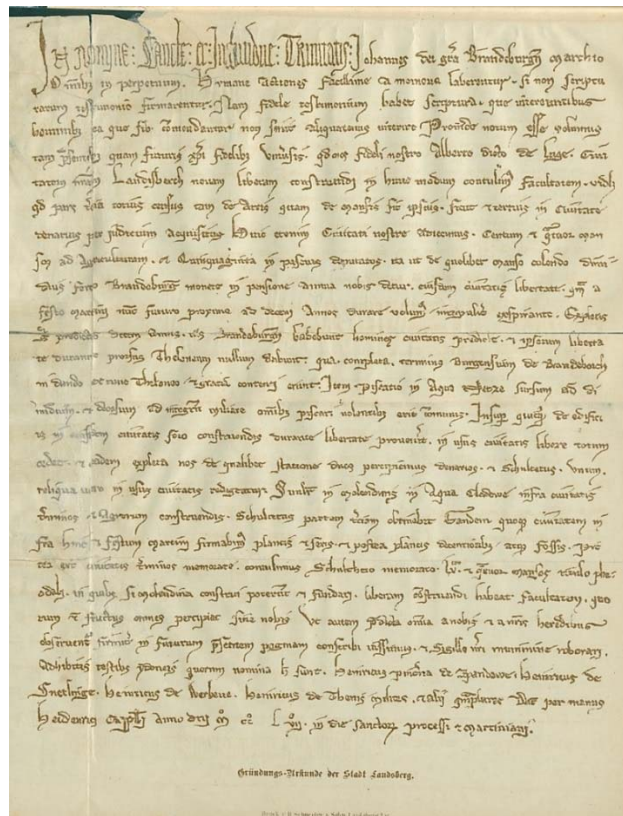 In nomine Sancte et Individue Trinitatis Johannes dei gra Brandeburgn marchio
in perpetuum. Humane actiones facillime a memoria laberentur si non scriptu
rarum testimonio firmarentur. Nam fidele testimonium habet scriptura que intereuntibus
hominibus ea que sibi comendantur non sinit aliquatenus interire Proinde novum esse volumus
tam presentibus quam futuris xpi fidelibus universis qd nos fideli nostro Alberto dicto de Luge. Civi
tatem nram Landisberch novam liberam construendi in hunc modum contulimus facultatem. videlicet
qd pars tercia totius census tam de areis quam de mansis sit ipsius. sicut tercius in civitate
denarius per judicium acquisitus Huic etenim Civitati nostre adiecimus Centum et quatuor man
sos ad agriculturam. et Quinquaginta in pascuis deputatos. ita ut de quolibet manso colendo dimi
dius ferto Brandeburgn monete in pensione annua nobis detur. eiusdem civitatis libertatem a
festo martini nunc futuro proxime ad decem Annos durare volumus Expletis
predictis decem annis. Brandeburgn habebunt homines civitatis predicte. et ipsorum liberta
te durante prorsus Theloneum nullum dabunt. qua completa, terminis Burgensium de Brandeborch
in dando Theloneo gracia contenti erunt. Item piscatio in Aqua sursum ad di
midium. et deorsum ad integrum miliare omnibus piscari volentibus erit communis. Insuper quicquid de edifici
is in civitatis foro construendis durante libertate provenerit. in usus civitatis libere totum
cedet. eadem expleta nos de qualibet statione duos percipiemus denarios. et Schultetus. Unum.
reliqua vero in usus civitatis redigantur. in molendinis in Aqua Clodowe infra civitatis
terminos et Agrorum construendis. Schultetus partem terciam obtinebit Eandem quoque civitatem in
fra hinc et festum martini firmabimus plancis et postea plancis decentioribus atque fossis.
civitatis terminos memorate. contulimus Schulteto memorato. et quatuor mansos
in quibus si molendina construi poterunt et fundari. liberam construendi habeat facultatem. quo
rum fructus omnes percipiet sine nobis Ut autem predicta omnia a nobis et a nris heredibus
observentur firmiter in futurum presentem paginam conscribi iussimus. et Sigilli nri munimine roborari.
Adhibitis testibus ydoneis quorum nomina hec sunt. Heinricus de Spandowe. Heinricus de
Snetlinge. Heinricus de Werbene. Heinricus de Thenis milites. et alii quamplures Dat per manus
Heidenrici Cappellani anno dni m cc L vii. in die sanctorum processi et martiniani.
Gründungs-Urkunde der Stadt Landsberg.